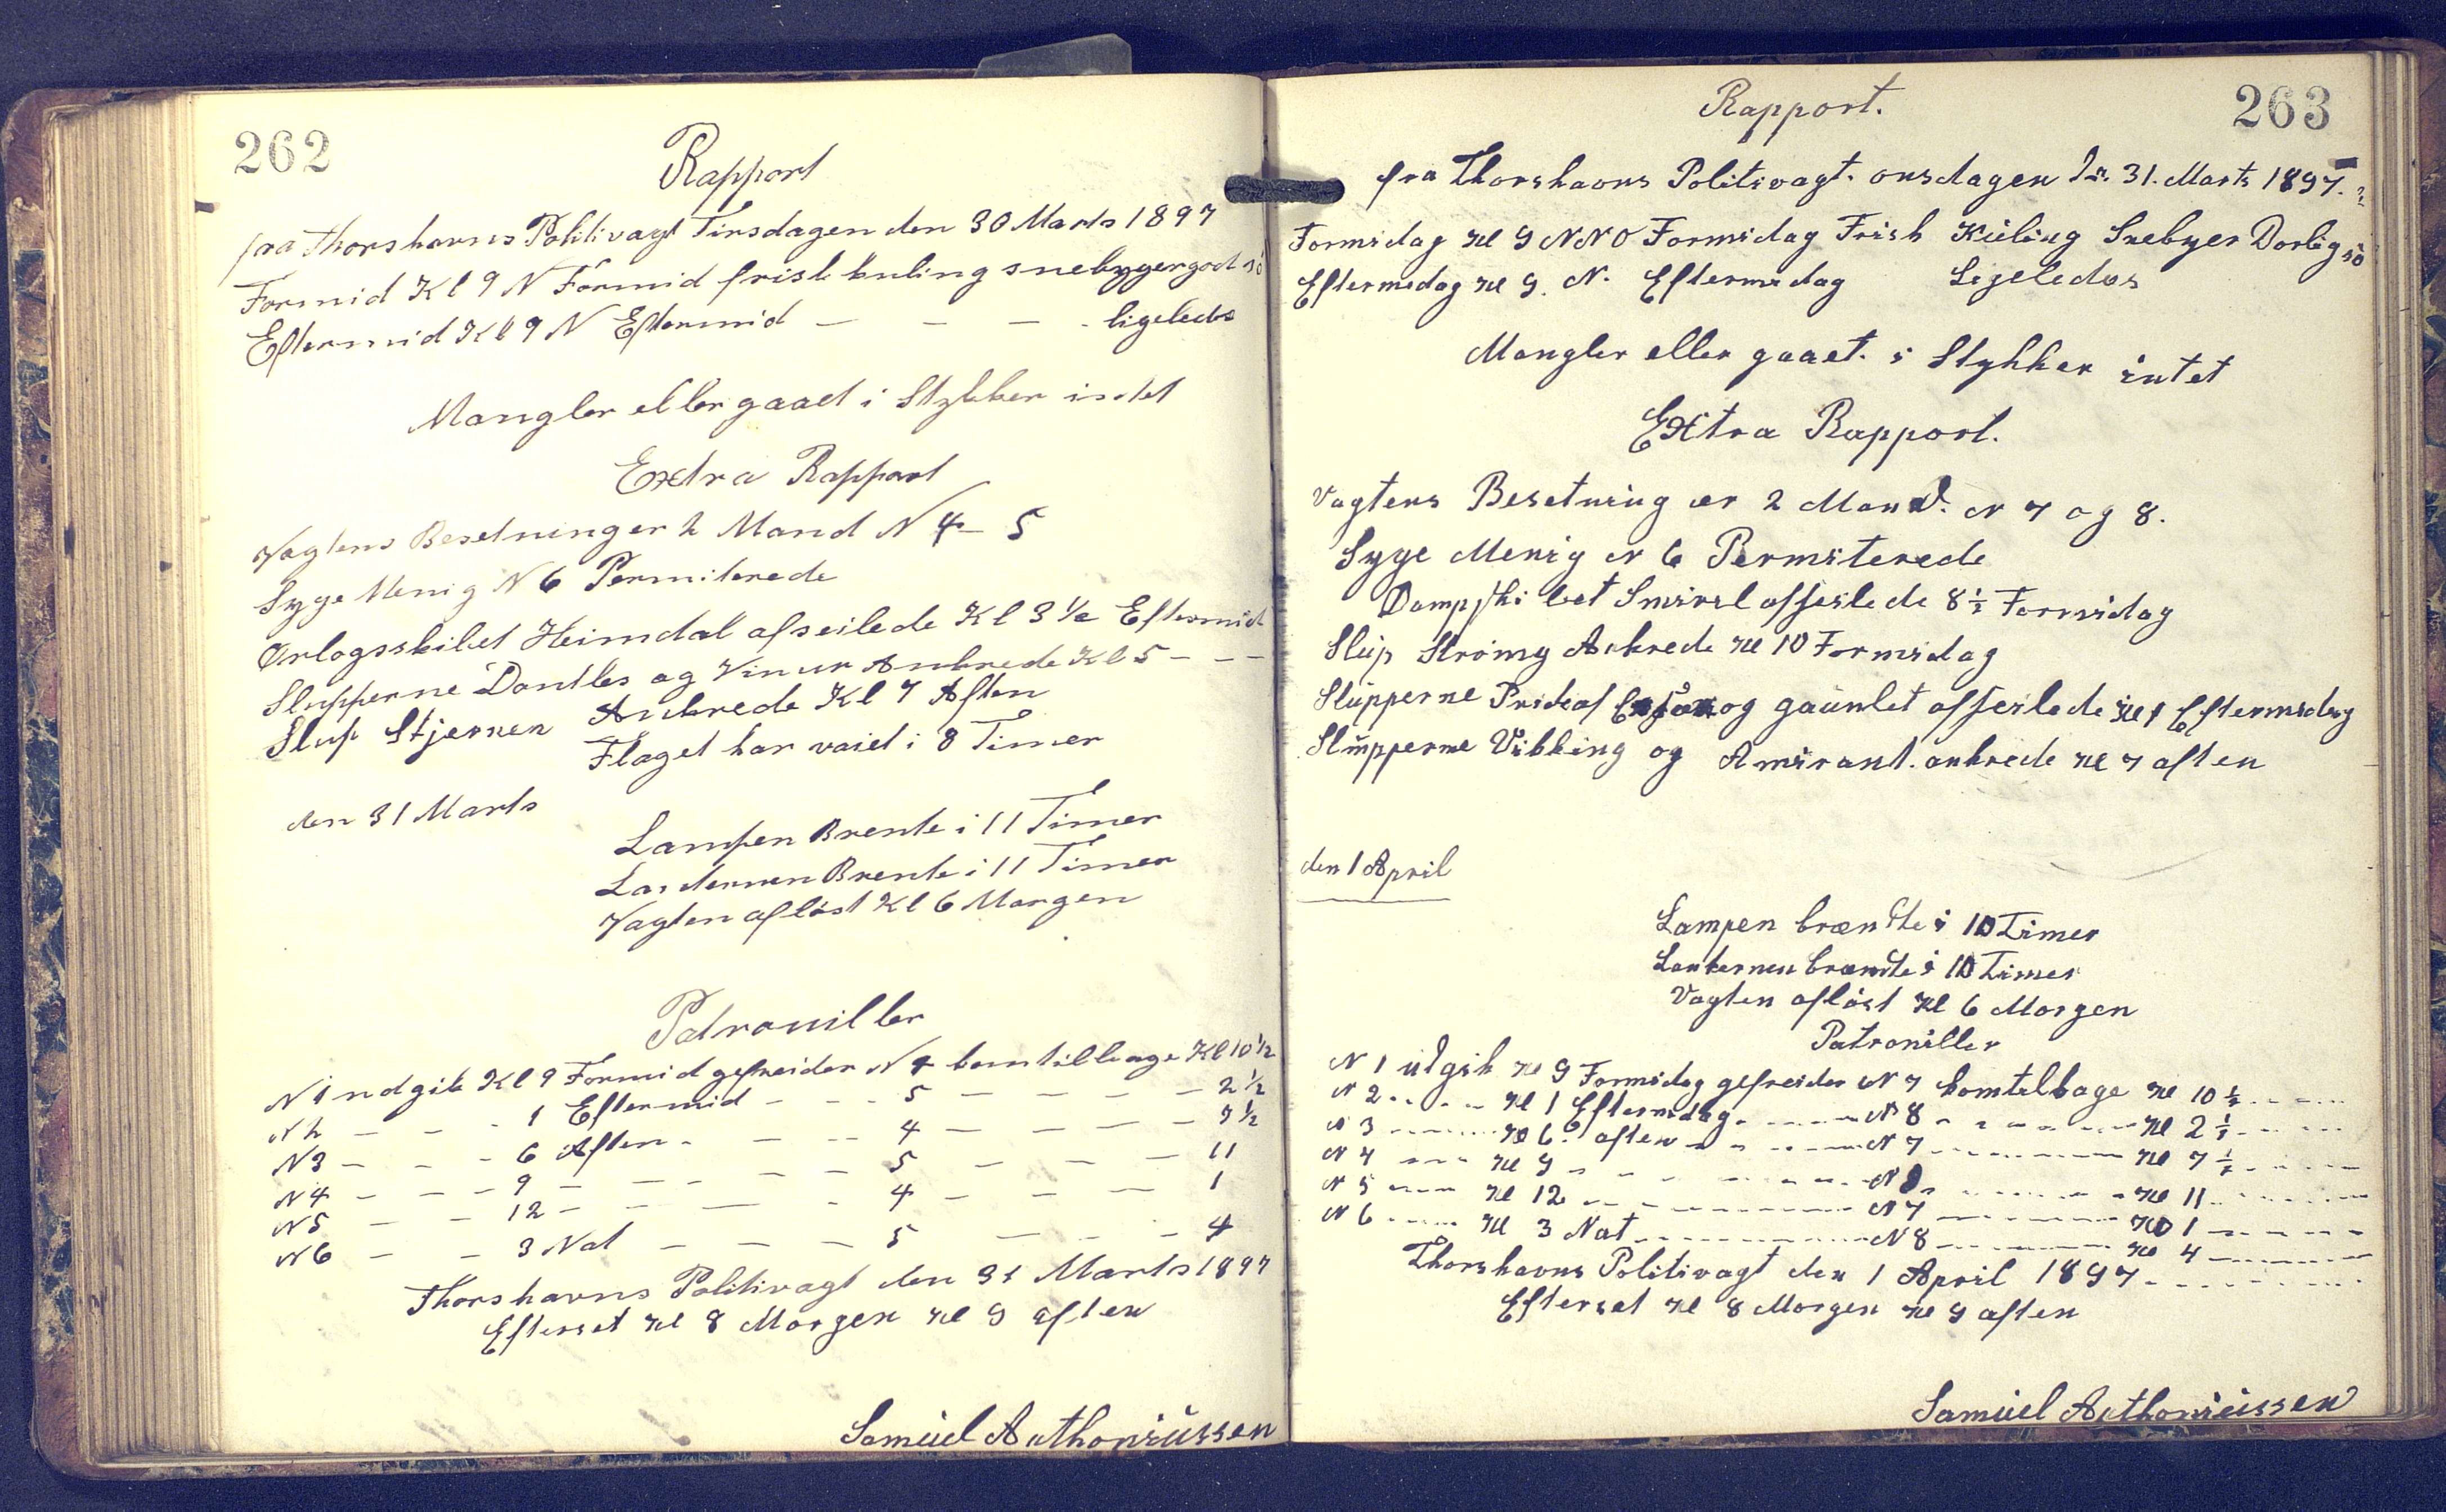 262
Rapport
fra Thorshavns Politivagt Tirsdagen den 30 Marts 1897
Formid Kl 9 N Formid frisk kuling snebyger god sö
Eftermid Kl 9 N Eftermid — — — ligeledes
Mangler eller gaaet i Stykker intet
Extra Rapport
Vagtens Besetning er 2 Mand N 4 - 5
Syge Menig N 6 Permiterede
Orlogsskibet Heimdal afseilede Kl 3 1/2 Eftermid
Slupperne Dontles og Vinur Ankrede Kl 5 - - -
Slup Stjernen Ankrede Kl 7 Aften
Flaget har vaiet i 8 Timer
den 31 Marts
Lampen Brente i 11 Timer
Lanternen Brente i 11 Timer
Vagten aflöst Kl 6 Morgen
Patrouiller
N 1 udgik Kl 9 Formid gefreider N 4 kom tilbage Kl 10 1/2
N 2 — - - 1 Eftermid - - - 5 — — — — 2 1/2
N 3 — - - 6 Aften - — -- 4 — — — — 7 1/2
N 4 — - - 9 — — - — 5 — — — 11
N 5 — - 12 — — — - 4 — — — 1
N 6 — - 3 Nat — — — 5 — - - 4
Thorshavns Politivagt den 31 Marts 1897
Efterset Kl 8 Morgen Kl 9 aften
Samúel Anthoniússen
263
Rapport.
fra Thorshavns Politivagt. onsdagen dn. 31. Marts 1897.
Formidag Kl 9 NNO Formidag Frish Kúling Snebyer Dorlig sö
Eftermedag Kl 9. N. Eftermidag Ligeledes
Mangler eller gaaet. i Stykker intet
Extra Rapport.
Vagtens Besetning er 2 Mand. N 7 og 8.
Syge Menig N 6 Permiterede
Dampskibet Smiril afseilede 8 1/2 Formidag
Slúp Strömy Ankrede Kl 10 Formidag
Slúpperne Pride of og gaúnlet afseilede Kl 1 Eftermidag
Slúpperne Vikking og Amirant. ankrede Kl 7 aften
den 1 April
Lampen brændte i 10 Timer
Lanternen brændte i 10 Timer
Vagten aflöst Kl 6 Morgen
Patroniller
N 1 údgik Kl 9 Formidag gefreider N 7 komtelbage Kl 10 1/2 - - - -
N 2 - - - - Kl 1 Eftermidag - - - - N 8 - - - - - - Kl 2 1/2 - - - -
N 3 - - - - Kl 6. aften - - - - N 7 - - - - - - Kl 7 1/2 - - - -
N 4 - - - Kl 9 - - - - - N 8 - - - - - Kl 11 - - - - -
N 5 - - - Kl 12 - - - - - N 7 - - - - - Kl 1 - - - - -
N 6 - - - - Kl 3 Nat - - - - - N 8 - - - - - Kl 4 - - - - -
Thorshavns Politivagt den 1 April 1897 - - - - - -
Efterset Kl 8 Morgen Kl 9 aften
Samúel Anthoniússen